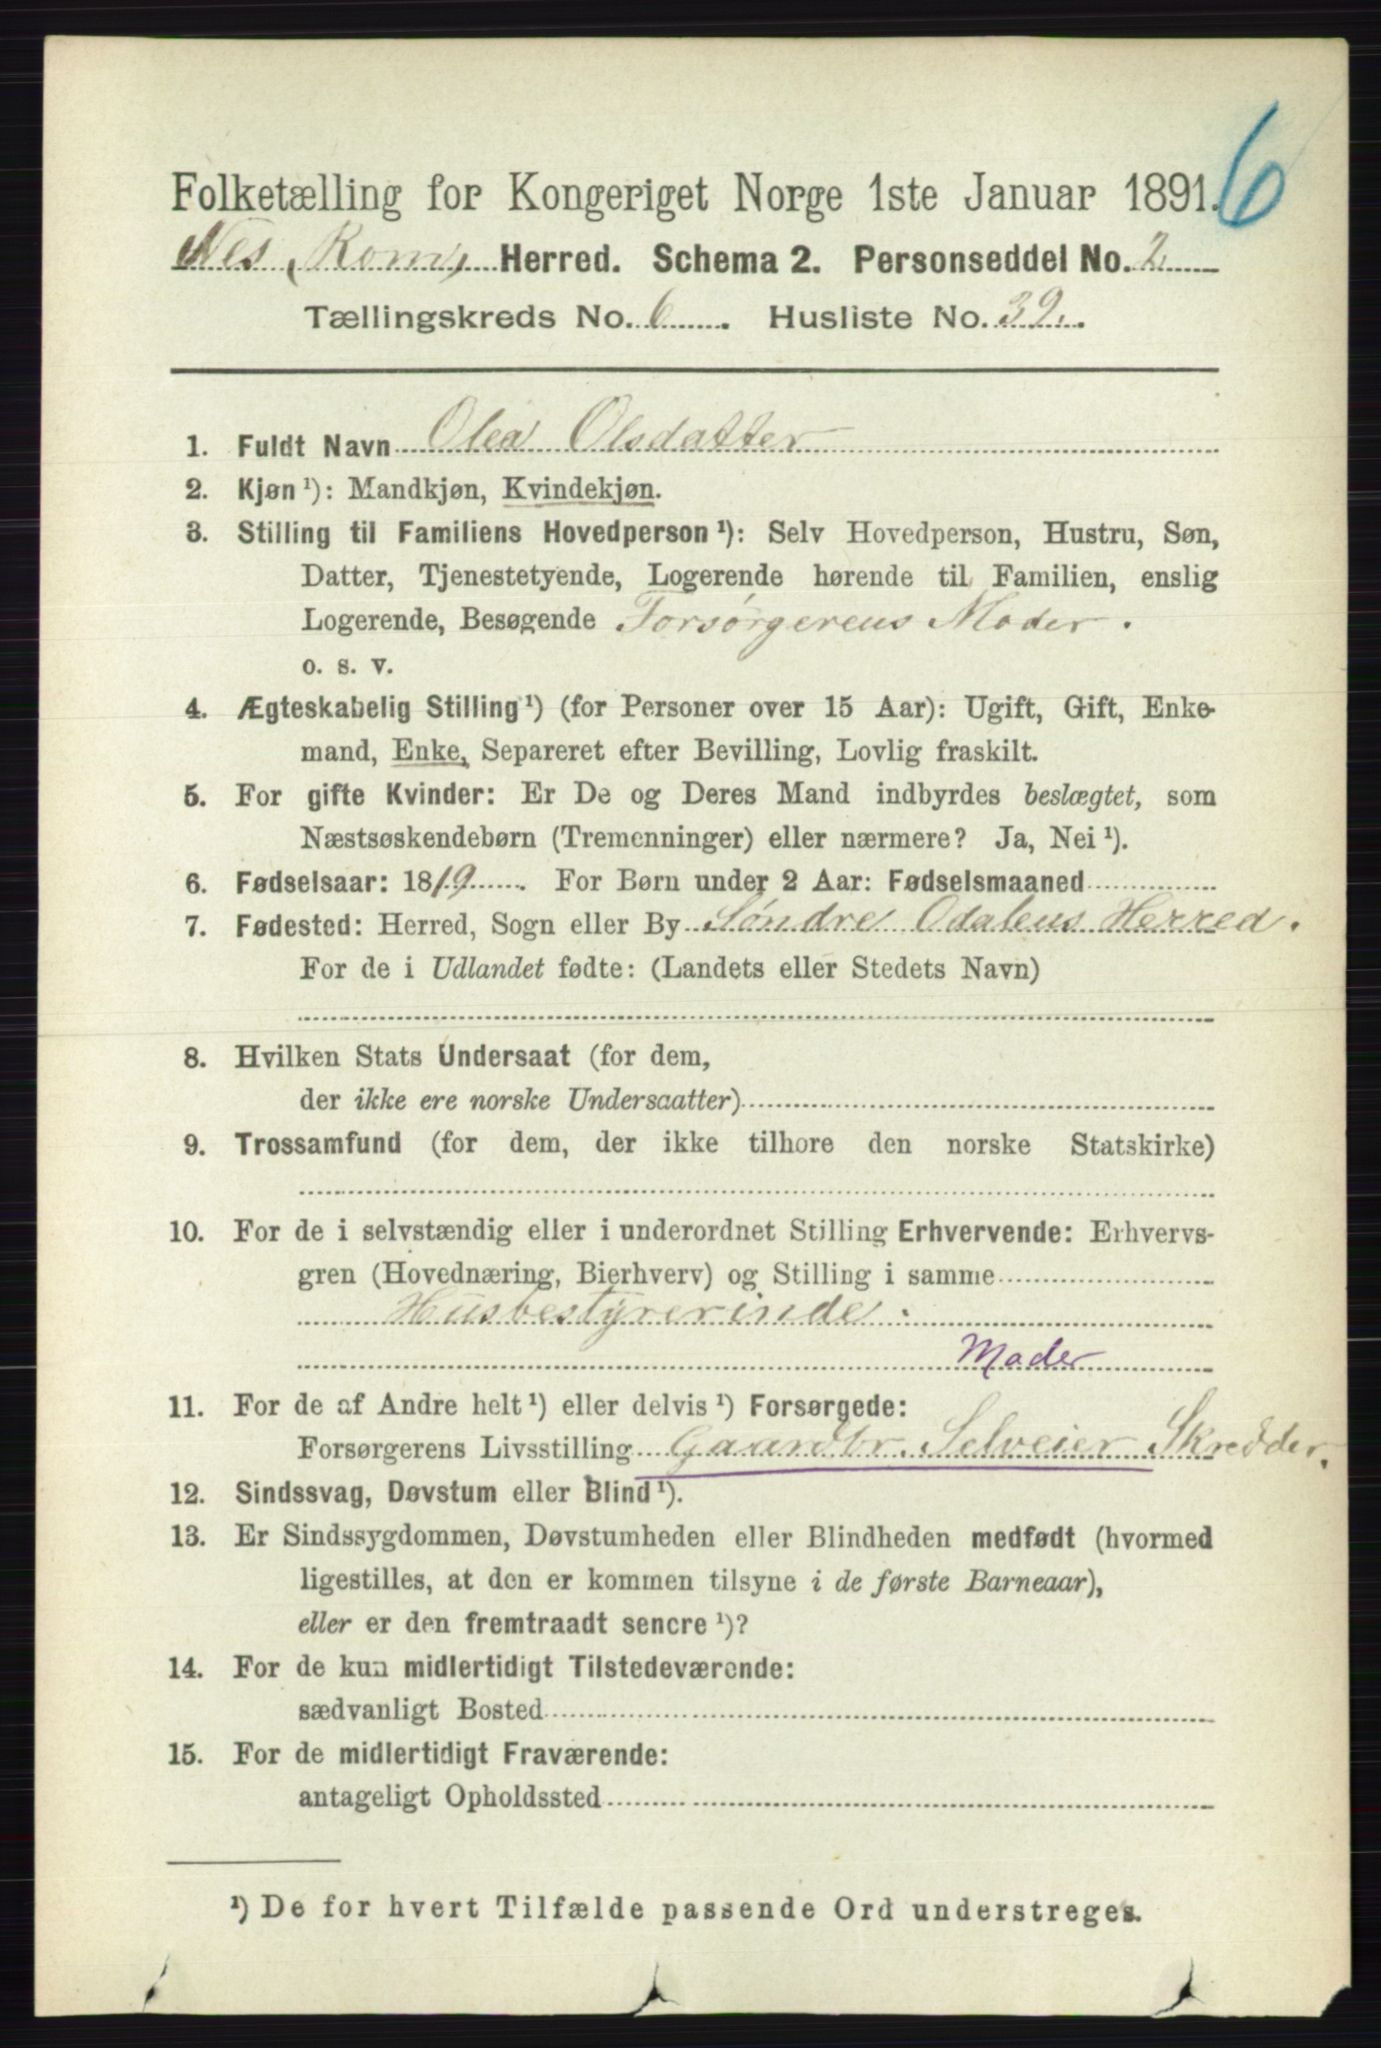 6
Folketælling for Kongeriget Norge 1ste Januar 1891.
Nes (Rom) Herred. Schema 2. Personseddel No. 2
Tællingskreds No. 6. Husliste No. 39.
1. Fuldt Navn Olea Olsdatter
2. Kjøn ¹): Mandkjøn, Kvindekjøn.
3. Stilling til Familiens Hovedperson ¹): Selv Hovedperson, Hustru, Søn,
Datter, Tjenestetyende, Logerende hørende til Familien, enslig
Logerende, Besøgende Forsørgerens Moder.
o. s. v.
4. Ægteskabelig Stilling ¹) (for Personer over 15 Aar): Ugift, Gift, Enke-
mand, Enke, Separeret efter Bevilling, Lovlig fraskilt.
5. For gifte Kvinder: Er De og Deres Mand indbyrdes beslægtet, som
Næstsøskendebørn (Tremenninger) eller nærmere? Ja, Nei ¹).
6. Fødselsaar: 1819. For Børn under 2 Aar: Fødselsmaaned
7. Fødested: Herred, Sogn eller By Søndre Odalens Herred.
For de i Udlandet fødte: (Landets eller Stedets Navn)
8. Hvilken Stats Undersaat (for dem,
der ikke ere norske Undersaatter)
9. Trossamfund (for dem, der ikke tilhore den norske Statskirke)
10. For de i selvstændig eller i underordnet Stilling Erhvervende: Erhvervs-
gren (Hovednæring, Bierhverv) og Stilling i samme
Husbestyrerinde.
Moder
11. For de af Andre helt ¹) eller delvis ¹) Forsørgede:
Forsørgerens Livsstilling Gaardbr. Selveier Skrædder.
12. Sindssvag, Døvstum eller Blind ¹).
13. Er Sindssygdommen, Døvstumheden eller Blindheden medfødt (hvormed
ligestilles, at den er kommen tilsyne i de første Barneaar),
eller er den fremtraadt senere ¹)?
14. For de kun midlertidigt Tilstedeværende:
sædvanligt Bosted
15. For de midlertidigt Fraværende:
antageligt Opholdssted
¹) De for hvert Tilfælde passende Ord understreges.